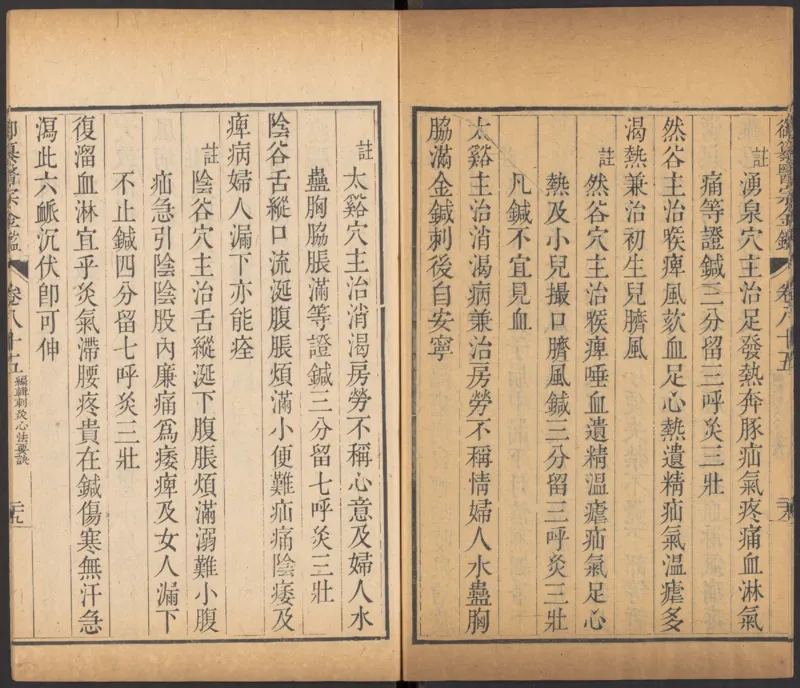 御纂醫宗金鑑
卷八十五
註湧泉穴主治足發熱奔豚疝氣疼痛血淋氣
痛等證鍼三分留三呼灸三壯
然谷主治喉痺風欬血足心熱遺精疝氣溫瘧多
渴熱兼治初生兒臍風
註然谷穴主治喉痺唾血遺精溫瘧疝氣足心
熱及小兒撮口臍風鍼三分留三呼灸三壯
凡鍼不宜見血
太谿主治消渴病兼治房勞不稱情婦人水蠱胸
脇滿金鍼刺後自安寧
註太谿穴主治消渴房勞不稱心意及婦人水
蠱胸脇脹滿等證鍼三分留七呼灸三壯
陰谷舌縱口流涎腹脹煩滿小便難疝痛陰痿及
痺病婦人漏下亦能痊
註陰谷穴主治舌縱涎下腹脹煩滿溺難小腹
疝急引陰陰股內廉痛為痿痺及女人漏下
不止鍼四分留七呼灸三壯
復溜血淋宜乎灸氣滯腰疼貴在鍼傷寒無汗急
瀉此六脈沉伏卽可伸
御纂醫宗金鑑
卷八十五
編輯刺灸心法要訣
二十九